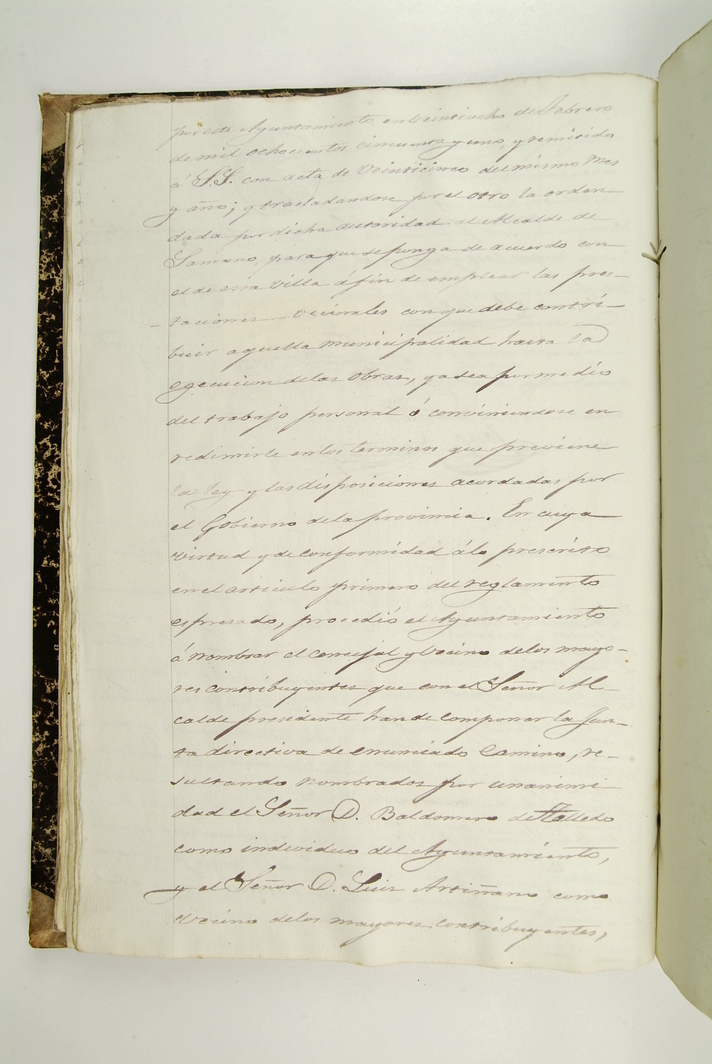 por este Ayuntamiento en veintiocho de Febrero
de mil ochocientos cincuenta y uno, y remitido
á S.S. con acta de veinticinco del mismo mes
y año; y trasladandose por el otro la orden
dada por dicha autoridad al Alcalde de
Samano, para que se ponga de acuerdo con
el de esta villa á fin de emplear las pres-
taciones vecinales con que debe contri-
buir aquella municipalidad hasta la
egecucion de las obras, ya sea por medio
del trabajo personal ó conviniendose en
redimirle en los terminos que previene
la ley y las disposiciones acordadas por
el Gobierno de la provincia. En cuya
virtud y de conformidad á lo prescrito
en el articulo primero del reglamento
espresado, procedió el Ayuntamiento
á nombrar el concejal y vecino de los mayo-
res contribuyentes que con el Señor Al
calde presidente han de componer la Jun-
ta directiva de enunciado camino, re-
sultando nombrados por unanimi
dad el Señor D. Baldomero de
como individuo del Ayuntamiento,
y el Señor D. Luis Artiñano como
vecino de los mayores contribuyentes,